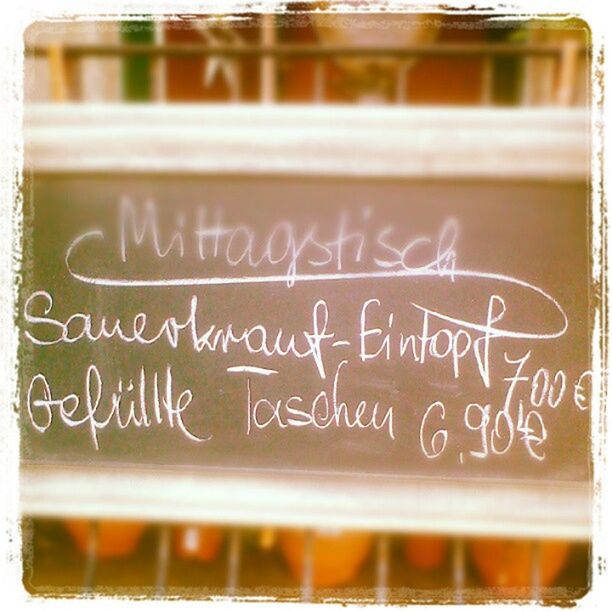 Mittagstisch
Sauerkraut-Eintopf 7,00 €
Gefüllte Taschen 6,90 €